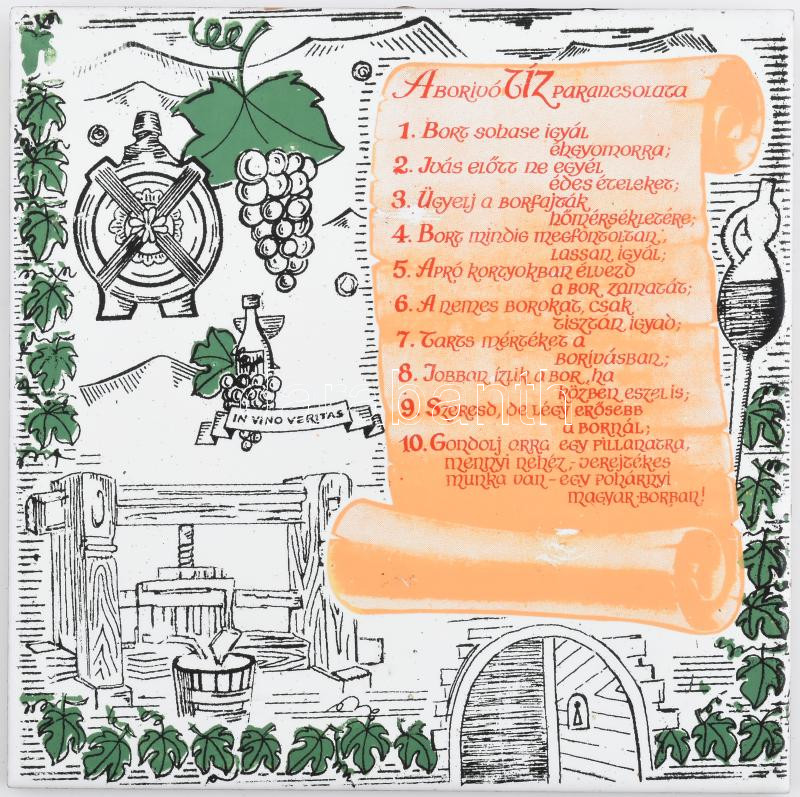 A borivó TÍZ parancsolata
1. Bort sohase igyál
éhgyomorra;
2. Ivás előtt ne egyél
édes ételeket;
3. Ügyelj a borfajták
hőmérsékletére;
4. Bort mindig megfontoltan,
lassan igyál;
5. Apró kortyokban élvezd
a bor zamatát;
6. A nemes borokat, csak
tisztán igyad;
7. Tarts mértéket a
borivásban;
8. Jobban ízlik a bor, ha
közben eszel is;
9. Szeresd, de légy erősebb
a bornál;
10. Gondolj arra egy pillanatra,
mennyi nehéz,- verejtékes
munka van - egy pohárnyi
magyar-borban!
IN VINO VERITAS
darabanth